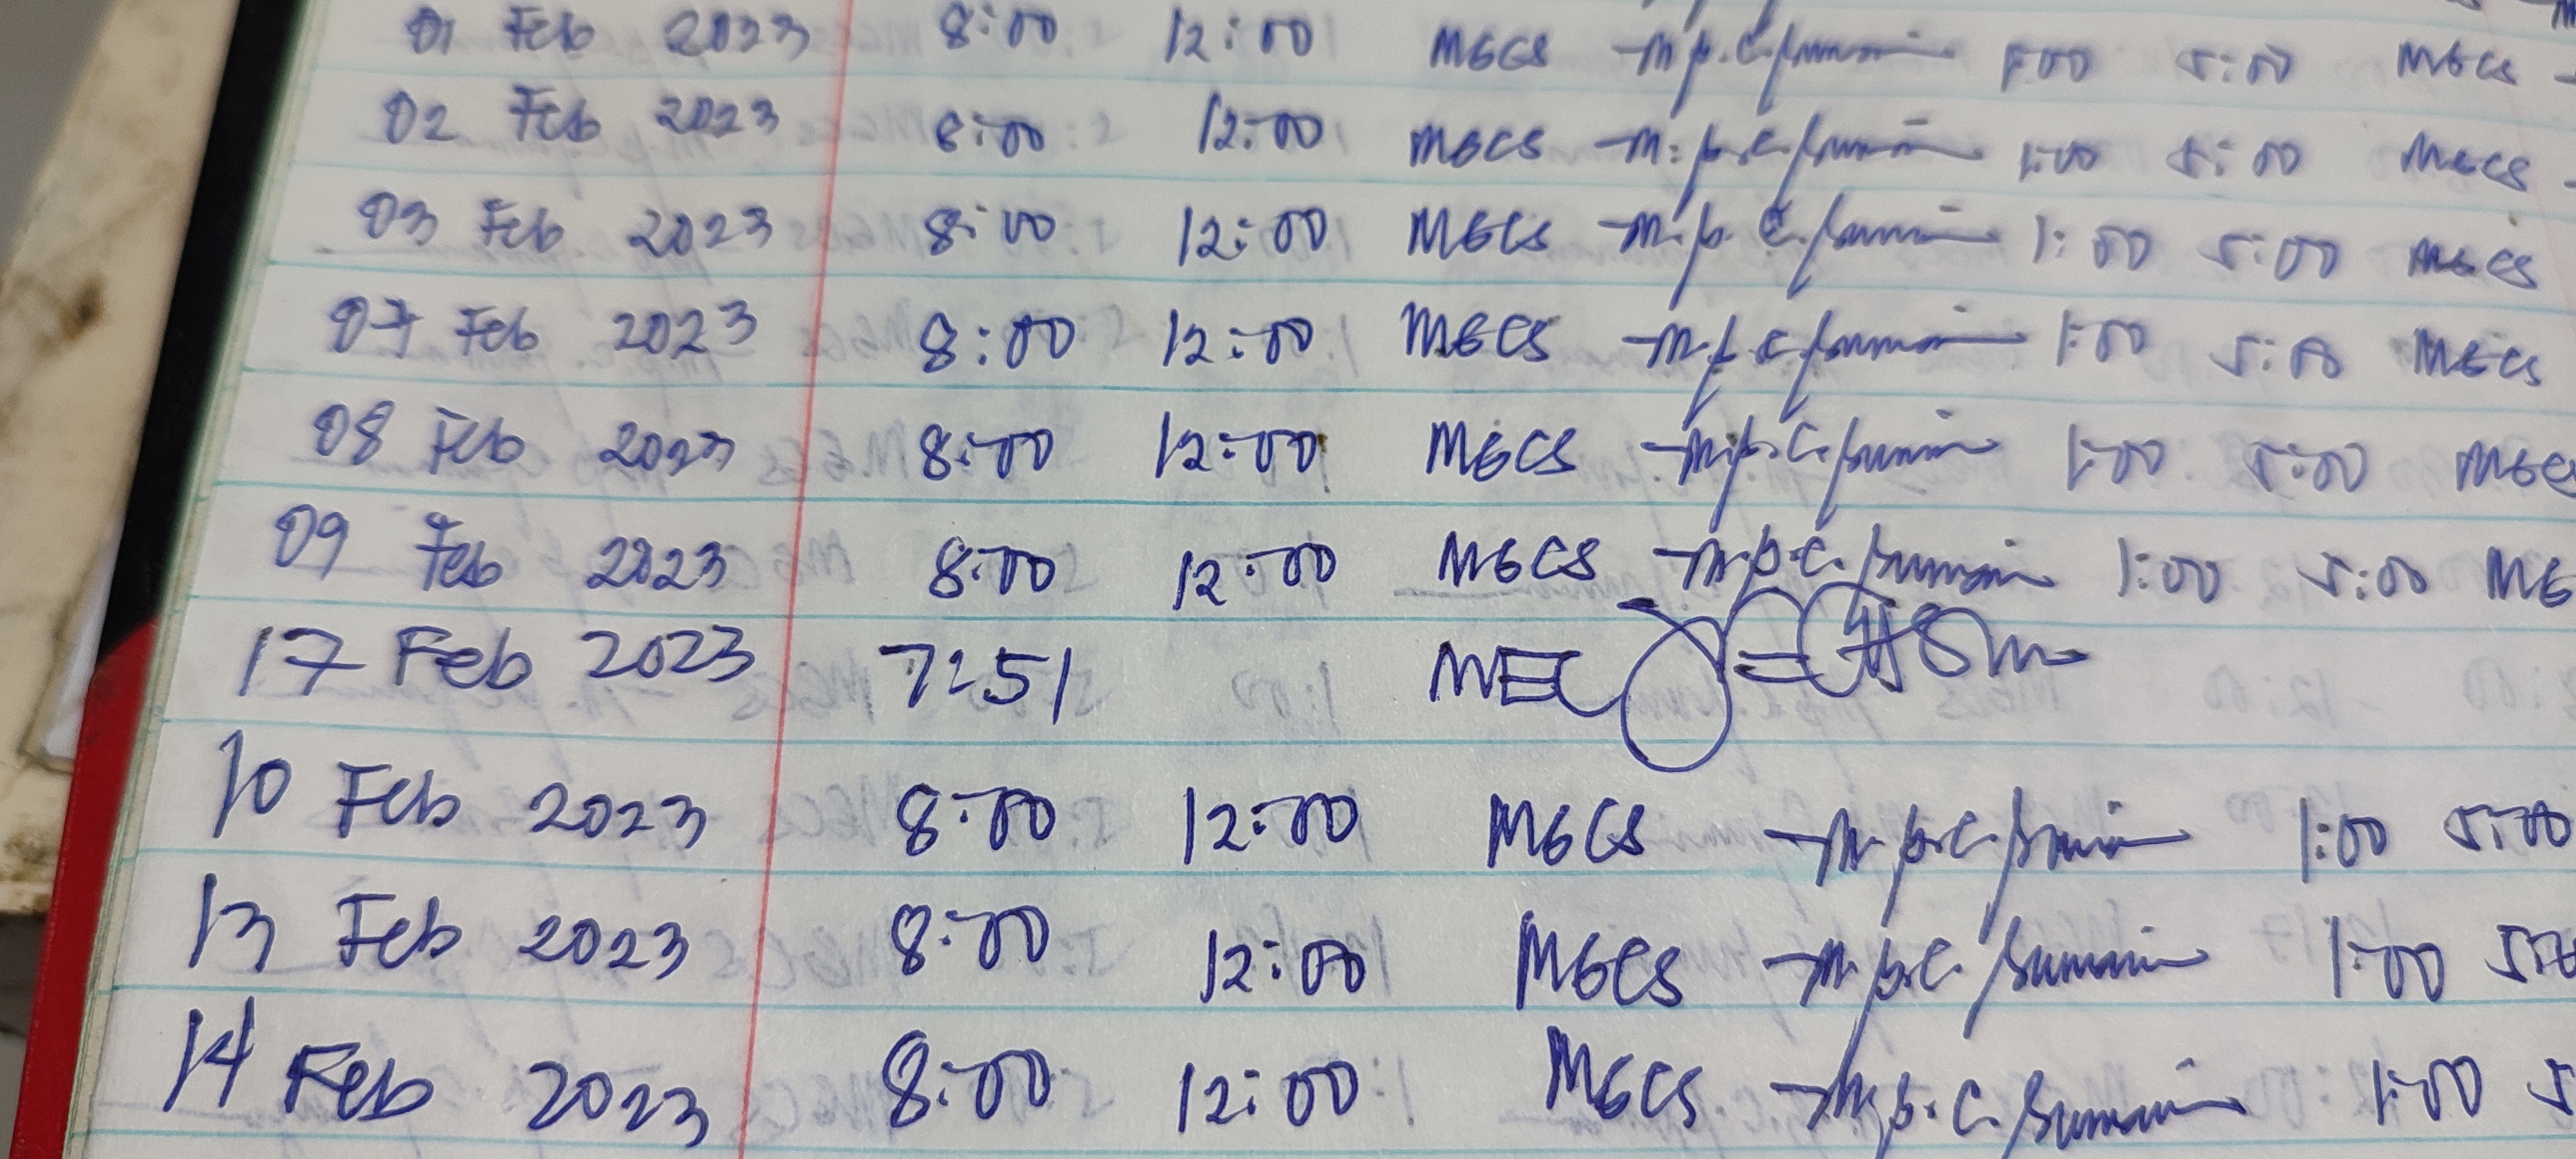 01 Feb 2023 8:00 12:00 MGCS 1:00 5:00 MGCS
02 Feb 2023 8:00 12:00 MGCS 1:00 5:00 MGCS
03 Feb 2023 8:00 12:00 MGCS 1:00 5:00 MGCS
07 Feb 2023 8:00 12:00 MGCS 1:00 5:00 MGCS
08 Feb 2023 8:00 12:00 MGCS 1:00 5:00 MGCS
09 Feb 2023 8:00 12:00 MGCS 1:00 5:00 MG
17 Feb 2023 7:51 MEC
10 Feb 2023 8:00 12:00 MGCS 1:00 5:00
13 Feb 2023 8:00 12:00 MGCS 1:00 5:0
14 Feb 2023 8:00 12:00 MGCS 1:00 5